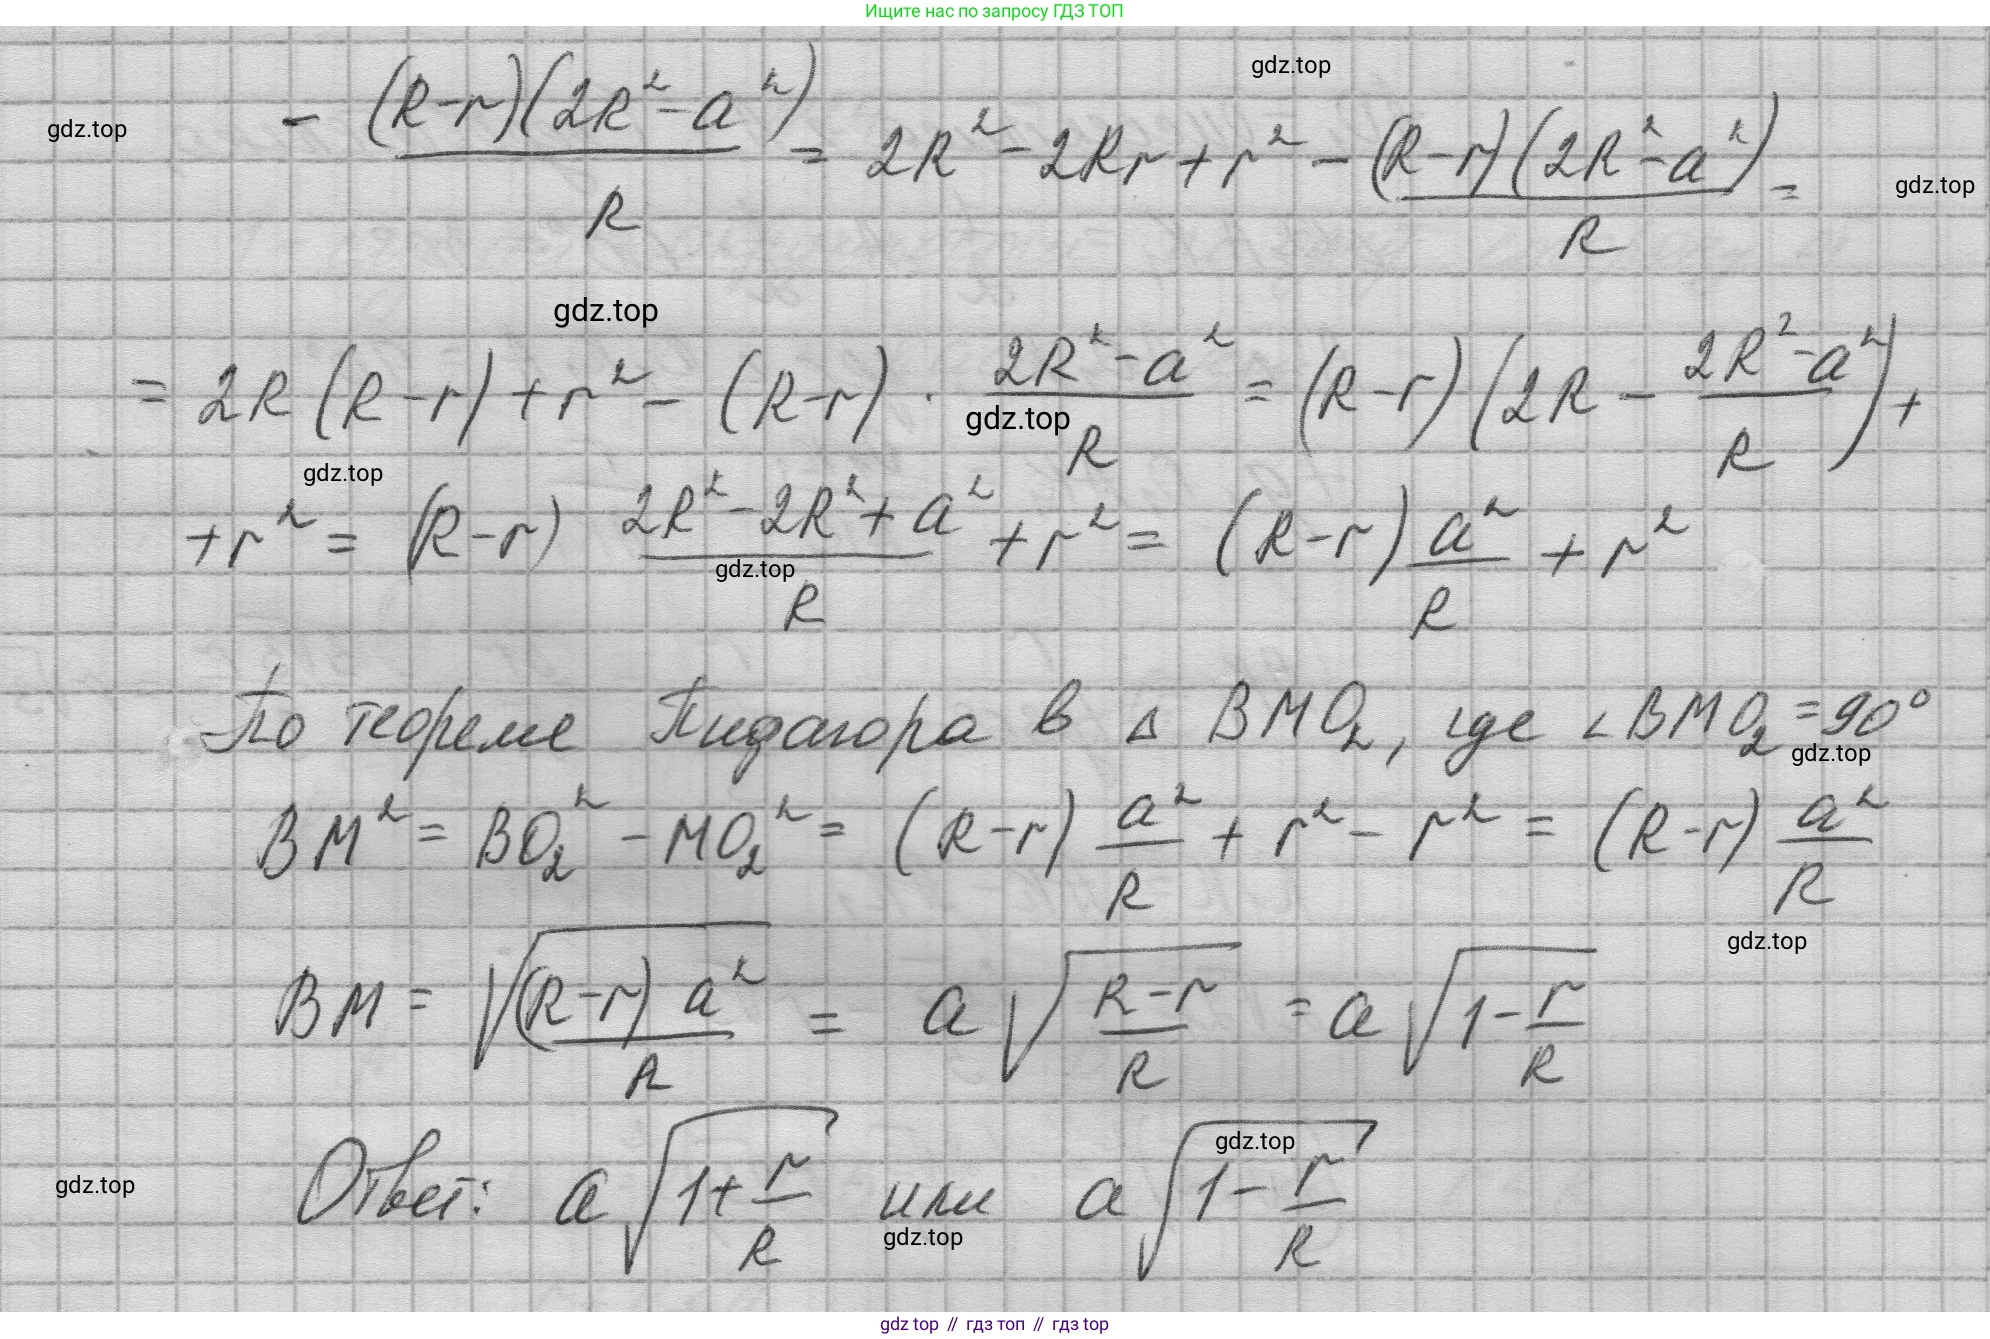 Ищите нас по запросу ГДЗ ТОП
gdz.top
gdz.top
- (R-r)(2R²-a²)/R = 2R²-2Rr+r² - (R-r)(2R²-a²)/R =
gdz.top
gdz.top
= 2R(R-r)+r² - (R-r) · (2R²-a²)/R = (R-r)(2R - (2R²-a²)/R) +
gdz.top
gdz.top
+r² = (R-r) (2R²-2R²+a²)/R + r² = (R-r) a²/R + r²
gdz.top
По теореме Пифагора в △ BMO₂, где ∠BMO₂=90°
gdz.top
BM² = BO₂² - MO₂² = (R-r) a²/R + r² - r² = (R-r) a²/R
gdz.top
BM = √((R-r) a²/R) = a√((R-r)/R) = a√(1-r/R)
gdz.top
gdz.top
Ответ: a√(1+r/R) или a√(1-r/R)
gdz.top
gdz top // гдз топ // gdz top